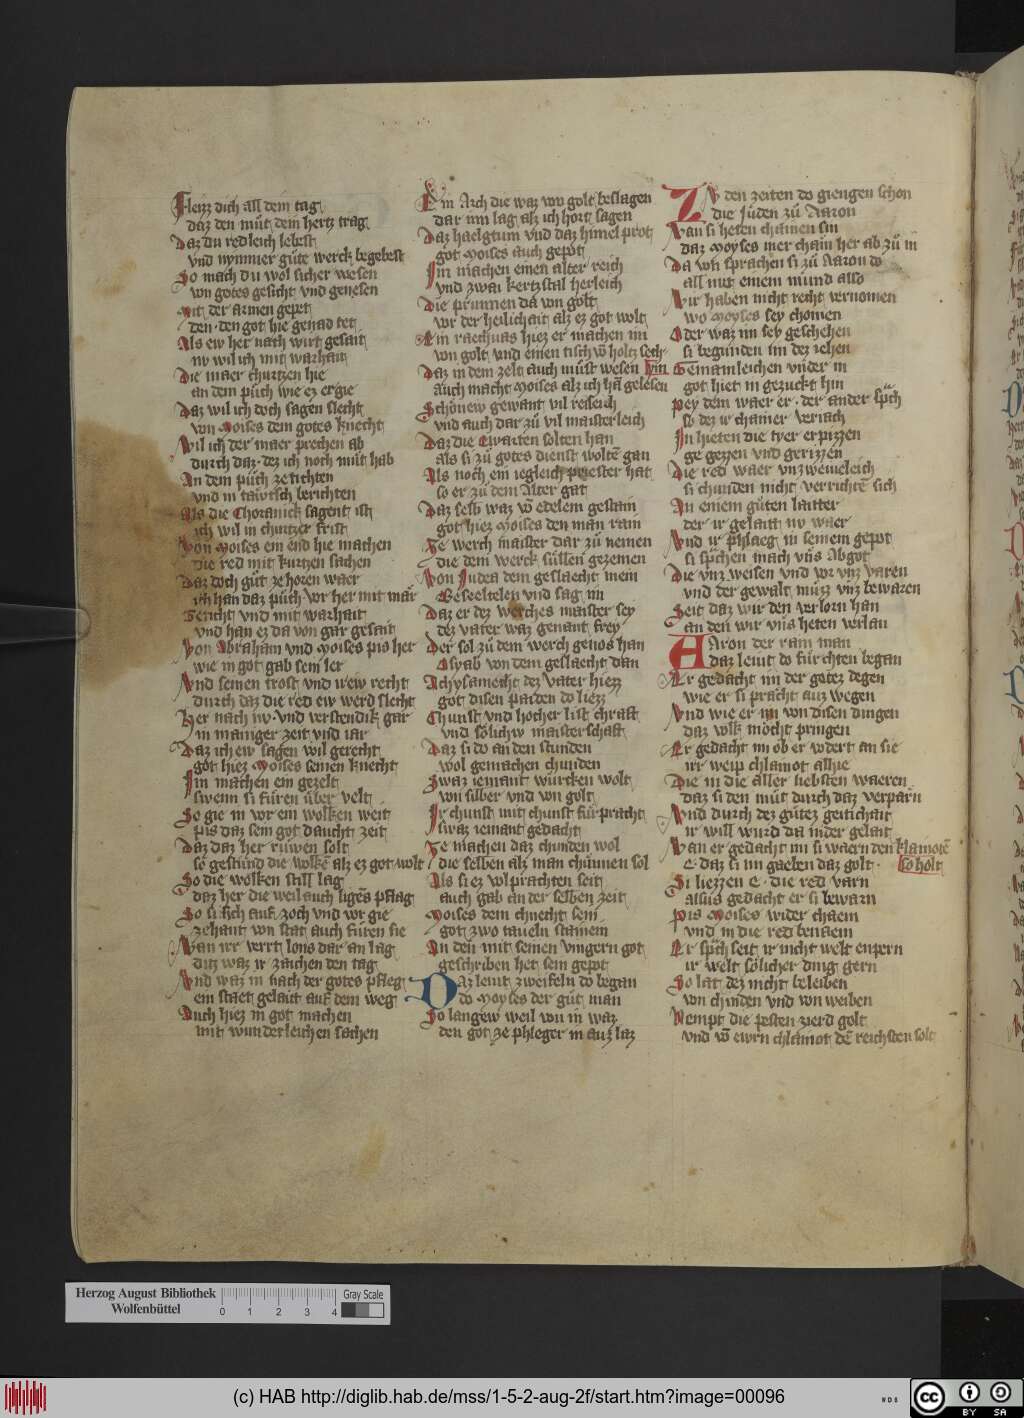 Fleizz dich all dein tag
daz den můt dein hertz trag
Daz du redleich lebest
vnd nymmer gůte werck begebest
So mach du wol sicher wesen
von gotes gesicht vnd genesen
Mit der armen gepet
den den got hie genad tet
Als ew her nach wirt gesait
nv wil ich mit warhait
Die maer churtzen hie
an dem půch wie ez ergie
Daz wil ich doch sagen slecht
von Moises dem gotes knecht
Wil ich der maer prechen ab
durch daz dez ich noch můt hab
An dem půch ze tichten
vnd in tawtsch berichten
Als die Choranick sagent ist
ich wil in churtzer frist
Von Moises ein end hie machen
die red mit kurtzen sachen
Daz doch gůt ze horen waer
ich han daz půch vor her mit maer
Gericht vnd mit warhait
vnd han ez da von gar gesait
Von Abraham vnd Moises pis her
wie in got gab sein ler
Vnd seinen trost vnd irew recht
durch daz die red ew werd slecht
Her nach nv vnd verstendik gar
in maniger zeit vnd iar
Daz ich ew sagen wil gerecht
got hiez Moises seinen knecht
Im machen ein gezelt
swenn si fůren über velt
So gie in vor ein wolken weit
pis daz sein got daucht zeit
Daz daz her růwen solt
so gestůnd die wolkē alz ez got wolt
So die wolken still lag
daz her die weil auch ligēs pflag
So si sich auf zoch vnd vor gie
zehant von stat auch fůren sie
Wan irr verrt lons dar an lag
ditz waz ir zaichen den tag
Vnd waz in nach der gotes pfleg
ein staet gelait auf dem weg
Auch hiez in got machen
mit wunderleichen sachen
Ein Arch die waz von golt beslagen
dar inn lag alz ich hort sagen
Daz haeligtum vnd daz himel prot
got Moises auch gepot
Im machen einen alter reich
vnd zwai kertzstal herleich
Die prunnen da von golt
vor der heilichait alz ez got wolt
Ein raechvas hiez er machen im
von golt vnd einen tisch vō holtz sech
Daz in dem zelt auch můst wesen hin
auch macht Moises alz ich hā gelesen
Schönew gewant vil reileich
vnd auch dar zů vil maisterleich
Daz die Ewarten solten han
als si zů gotes dienst woltē gan
Als noch ein iegleich priester hat
so er zů dem Alter gat
Daz selb waz vō edelem gestain
got hiez Moises den man rain
Ze werch maister dar zů nemen
die dem werck süllen gezemen
Von Iudea dem geslaecht mein
Beseeltelen vnd sag im
Daz er dez werches maister sey
dez vater waz genant frey
Der sol zů dem werch genos han
Asyab von dem geslaecht dan
Achysamecht dez vater hiezz
got disen paiden do liezz
Chunst vnd hocher list chraft
vnd sölichw maisterschaft
Daz si do an den stunden
wol gemachen chunden
Swaz iemant würcken wolt
von silber vnd von golt
Ir chunst mit chunst fürpracht
swaz iemant gedacht
Ze machen daz chunden wol
die selben alz man chünnen sol
Als si ez volprachten seit
auch gab an der selben zeit
Moises dem chnecht sein
got zwo taueln stainein
An den mit seinen vingern got
geschriben het sein gepot
Daz leut zweifeln do began
do Moyses der gůt man
So langew weil von in waz
den got ze phleger in auz laz
Zv den zeiten do giengen schon
die Juden zů Aaron
Wan si heten chainen sin
daz Moyses mer chain her ab zů in
Da von sprachen si zů Aaron do
all mit einem mund also
Wir haben nicht recht vernomen
wo Moyses sey chomen
Oder waz im sey geschehen
si begunden im dez iehen
Gemainleichen vnder in
got hiet in gezuckt hin
Pey dem waer er der ander sp̄ch
so dez ir chainer veriach
In hieten die tyer erpizzen
ge gezzen vnd gerizzen
Die red waer vnzweiueleich
si chunden nicht verrichtē sich
An einem gůten laitter
der ir gelaitt nv waer
Vnd ir phlaeg in seinem gepot
si sp̄chen mach vns Abgot
Die vnz weisen vnd vor vnz varen
vnd der gewalt müzz vnz bewaren
Seit daz wir den verlorn han
an den wir vns heten verlan
Aaron der rain man
daz leutt do fürchten began
Er gedacht im der gotez degen
wie er si pracht auz wegen
Vnd wie er im von disen dingen
daz volk möcht pringen
Er gedacht im ob er vodert an sie
irr weip chlainot alhie
Die in die aller liebsten waeren
daz si den můt durch daz verparn
Vnd durch dez gůtez geitichait
ir will wurd da nider gelait
Wan er gedacht im si waern den klainotē
E daz si im gaeben daz golt so holt
Si liezzen E die red varn
alsus gedacht er si bewarn
Pis Moises wider chaem
vnd in die red benaem
Er sp̄ch seit ir nicht welt enpern
ir welt sölicher ding gern
So lat dez nicht beleiben
von chinden vnd von weiben
Nempt die pesten zierd golt
vnd vō ewrn chlainot dē reichsten solt
Herzog August Bibliothek
Wolfenbüttel
0 1 2 3 4
Gray Scale
(c) HAB http://diglib.hab.de/mss/1-5-2-aug-2f/start.htm?image=00096
WDB
cc BY SA